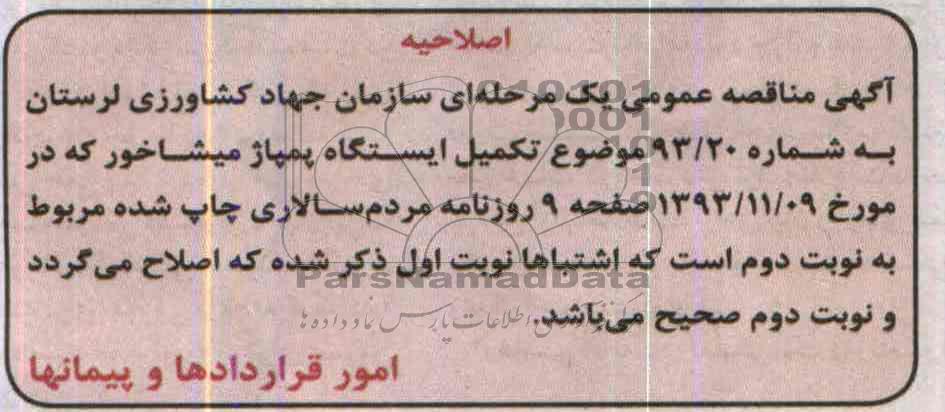 اصلاحیه
آگهی مناقصه عمومی یک مرحله‌ای سازمان جهاد کشاورزی لرستان
به شماره ۹۳/۲۰ موضوع تکمیل ایستگاه پمپاژ میشاخور که در
مورخ ۱۳۹۳/۱۱/۰۹ صفحه ۹ روزنامه مردم‌سالاری چاپ شده مربوط
به نوبت دوم است که اشتباها نوبت اول ذکر شده که اصلاح می‌گردد
ParsNamadData
و نوبت دوم صحیح می‌باشد.
امور قراردادها و پیمانها